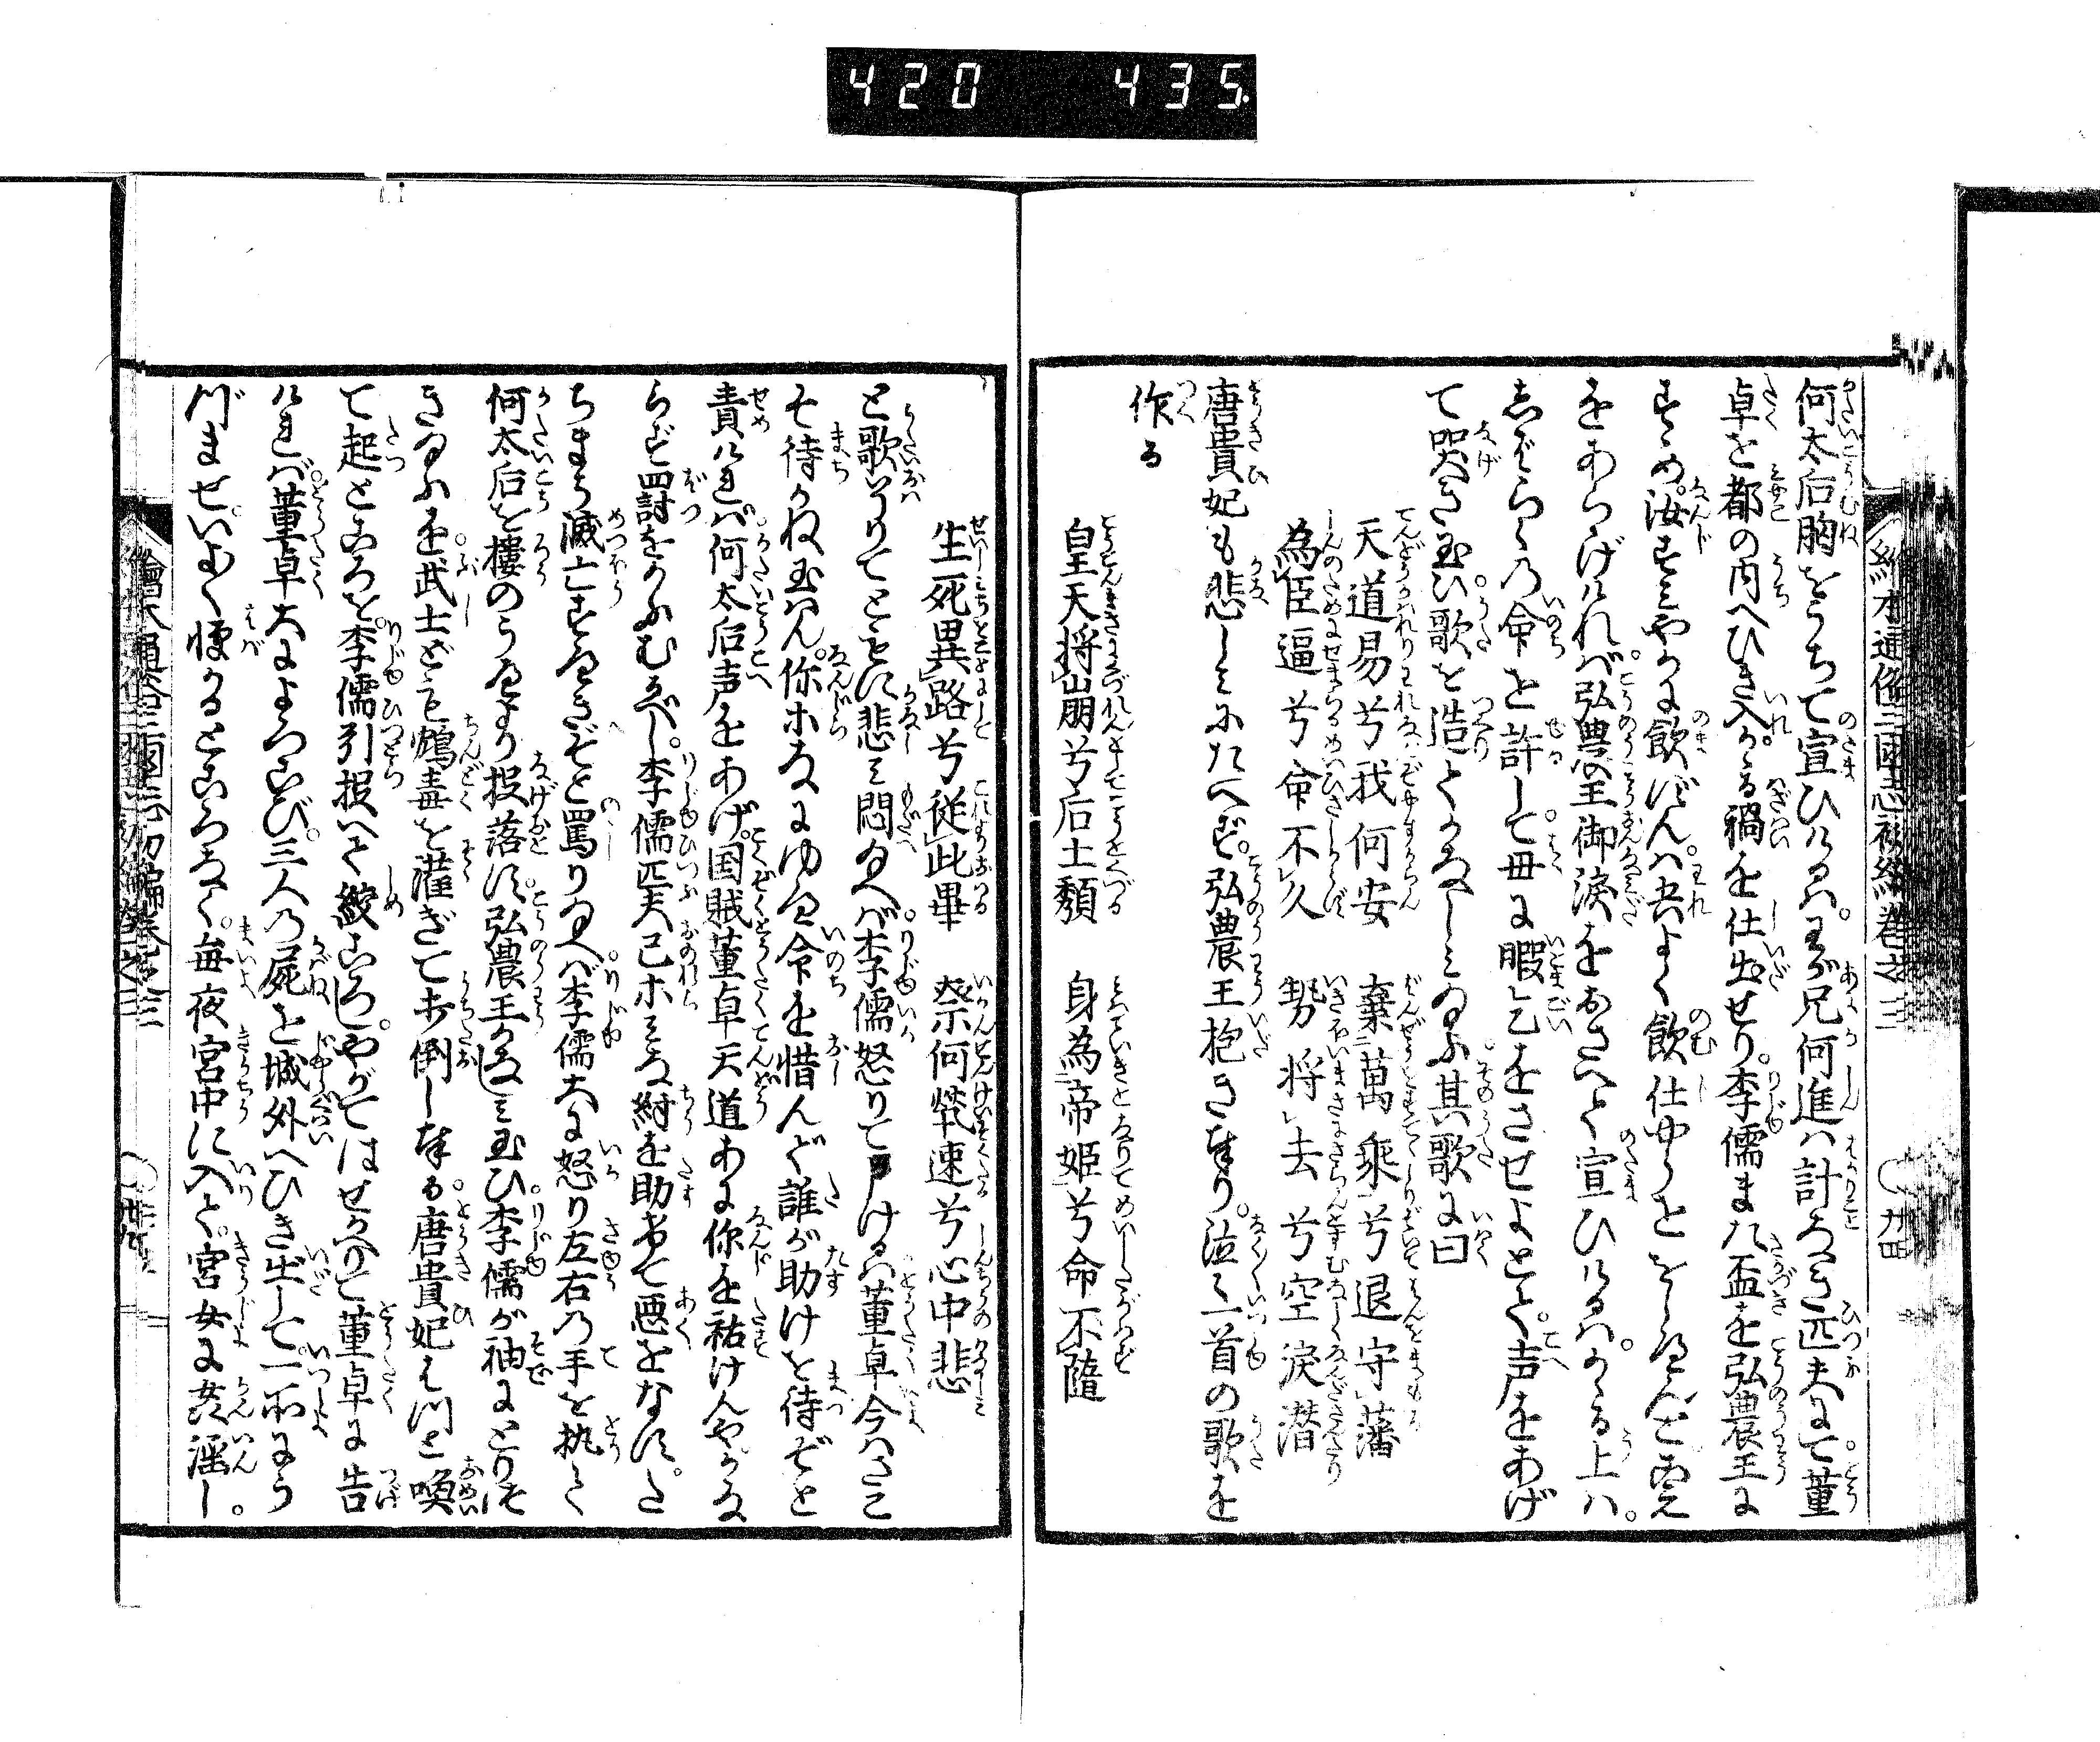 420 435
繪本通俗三國志初編卷之三 廿四
何太后胸をうちて宣ひけるハ。わが兄何進ハ計なき匹夫にて董
卓を都の内へひき入かゝる禍を仕出せり。李儒また盃を弘農王に
すゝめ。汝すミやかに飲ずんハ。我よく飲仕やうをとらせんと雲
をあらげけれバ。弘農王御涙をおさへて宣ひけるハ。かゝる上ハ。
しばらくの命を許して。母に暇乞をさせよとて。声をあげ
て哭き玉ひ。歌を造てかなしミ玉ふ。其歌に曰
天道易兮我何安 棄萬乘兮退守藩
為臣逼兮命不久 勢将去兮空淚潜
唐貴妃も悲しミにたへず。弘農王抱き奉り。泣く一首の歌を
作る
皇天将崩兮后土頽 身為帝姫兮命不隨
生死異路兮従此畢 祭何煢速兮心中悲
と歌おハりてともに悲ミ悶玉へバ。李儒怒りて申けるハ董卓今ハさこ
そ待かね玉はん。你ホなにゆゑ命を惜んで誰が助けを待ぞと
責けれバ。何太后声をあげ。国賊董卓天道あに你を祐けんやかな
らず罰をかふむるべし。李儒匹夫己ホミな紂を助けて悪をなす。た
ちまち滅亡すべきぞと罵り玉へバ。李儒大に怒り左右の手を執て
何太后を樓のうへより投落す。弘農王かなしミ玉ひ。李儒が袖にとりつ
き玉ふを。武士ども鴆毒を灌ぎて打倒し奉る。唐貴妃もわつと喚
て起ところを。李儒引捉へて絞ころし。やがてはせかへりて董卓に告
けれバ。董卓大によろこび。三人の屍を城外へひき出して。一所にう
づませ。いよ〳〵憚かるところなく。毎夜宮中に入て。宮女に姦淫し。
繪本通俗三國志初編卷之三